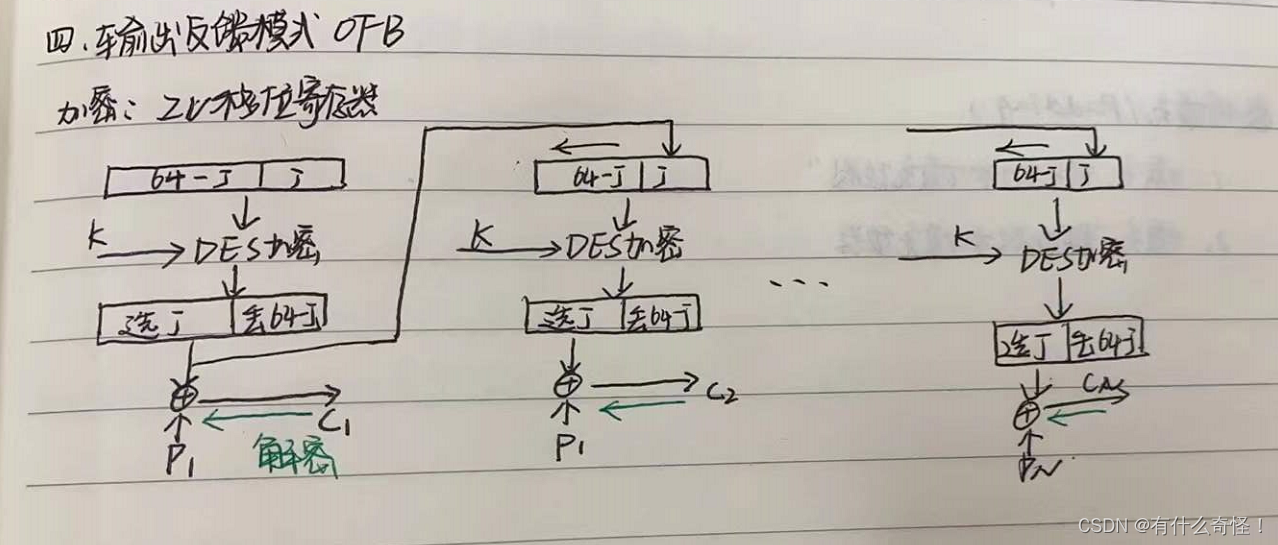 四、输出反馈模式 OFB
加密：IV移位寄存器
64-J J 64-J J 64-J J
K DES加密 K DES加密 K DES加密
选J 丢64-J 选J 丢64-J ... 选J 丢64-J
C1 C2 CN
P1 解密 P1 PN
CSDN @有什么奇怪！